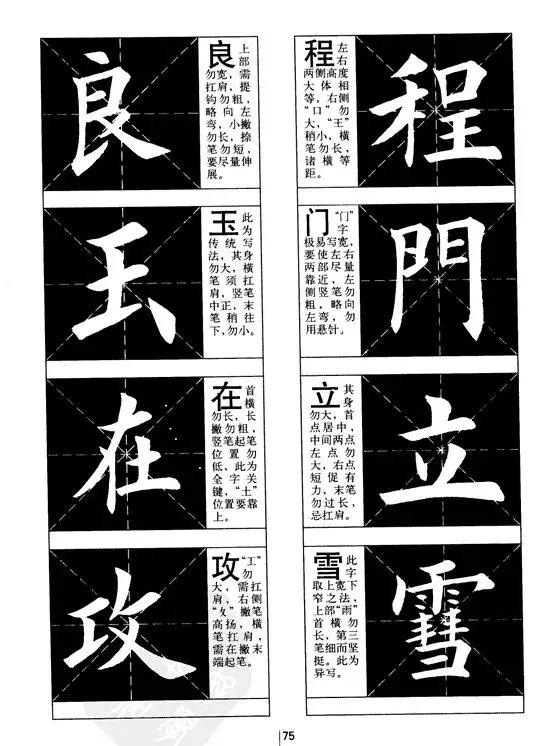 良
良 上
部
勿宽，需
扛肩，提
钩勿粗，
略向左
弯，小撇
勿长，捺
笔勿短，
要尽量伸
展。
玉
玉 此
为
传统写
法，其身
勿大，横
笔须扛
肩，竖笔
中正，末
笔稍往
下，勿小。
在
在 首
横
勿长，长
撇勿粗，
竖笔起笔
位置勿
低，此为
全字关
键，“土”
位置要靠
上。
攻
攻 “工”
勿
大，需扛
肩，右侧
“攵”撇笔
高扬，横
笔扛肩，
需在撇末
端起笔。
程 左
右
两侧高度
大体相
等，右侧
“口”勿
大，“王”
稍小，横
笔勿长，
诸横等
距。
程
门 “门”
字
极易写宽，
要使左右
两部尽量
靠近，左
侧竖笔勿
粗，略向
左弯，勿
用悬针。
門
立 其
身
勿大，首
点居中，
中间两点
左点勿
大，右点
短促有
力，末笔
勿过长，
忌扛肩。
立
雪 此
字
取上宽下
窄之法，
上部“雨”
首横勿
长，第三
笔细而坚
挺。此为
异写。
雪
75